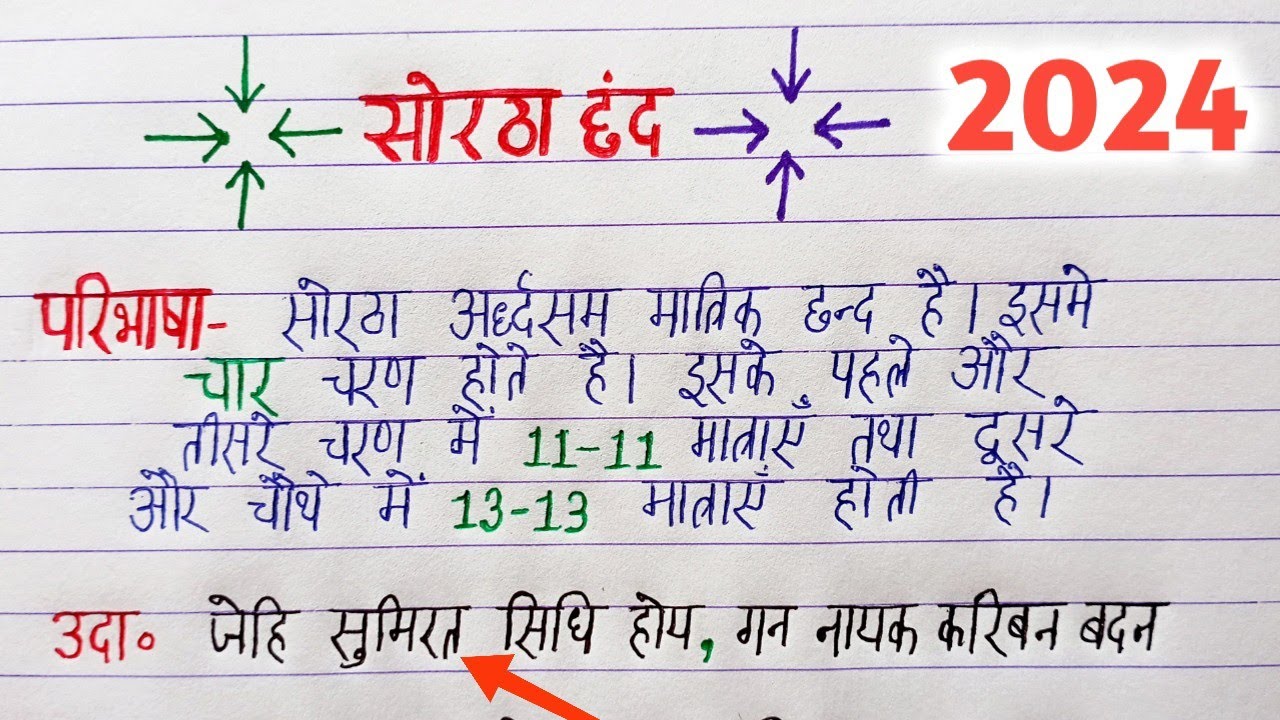 सोरठा छंद
2024
परिभाषा- सोरठा अर्ध्दसम मात्रिक छन्द है। इसमे
चार चरण होते है। इसके पहले और
तीसरे चरण में 11-11 मात्राएँ तथा दूसरे
और चौथे में 13-13 मात्राएँ होती है।
उदा॰ जेहि सुमिरत सिधि होय, गन नायक करिबन बदन